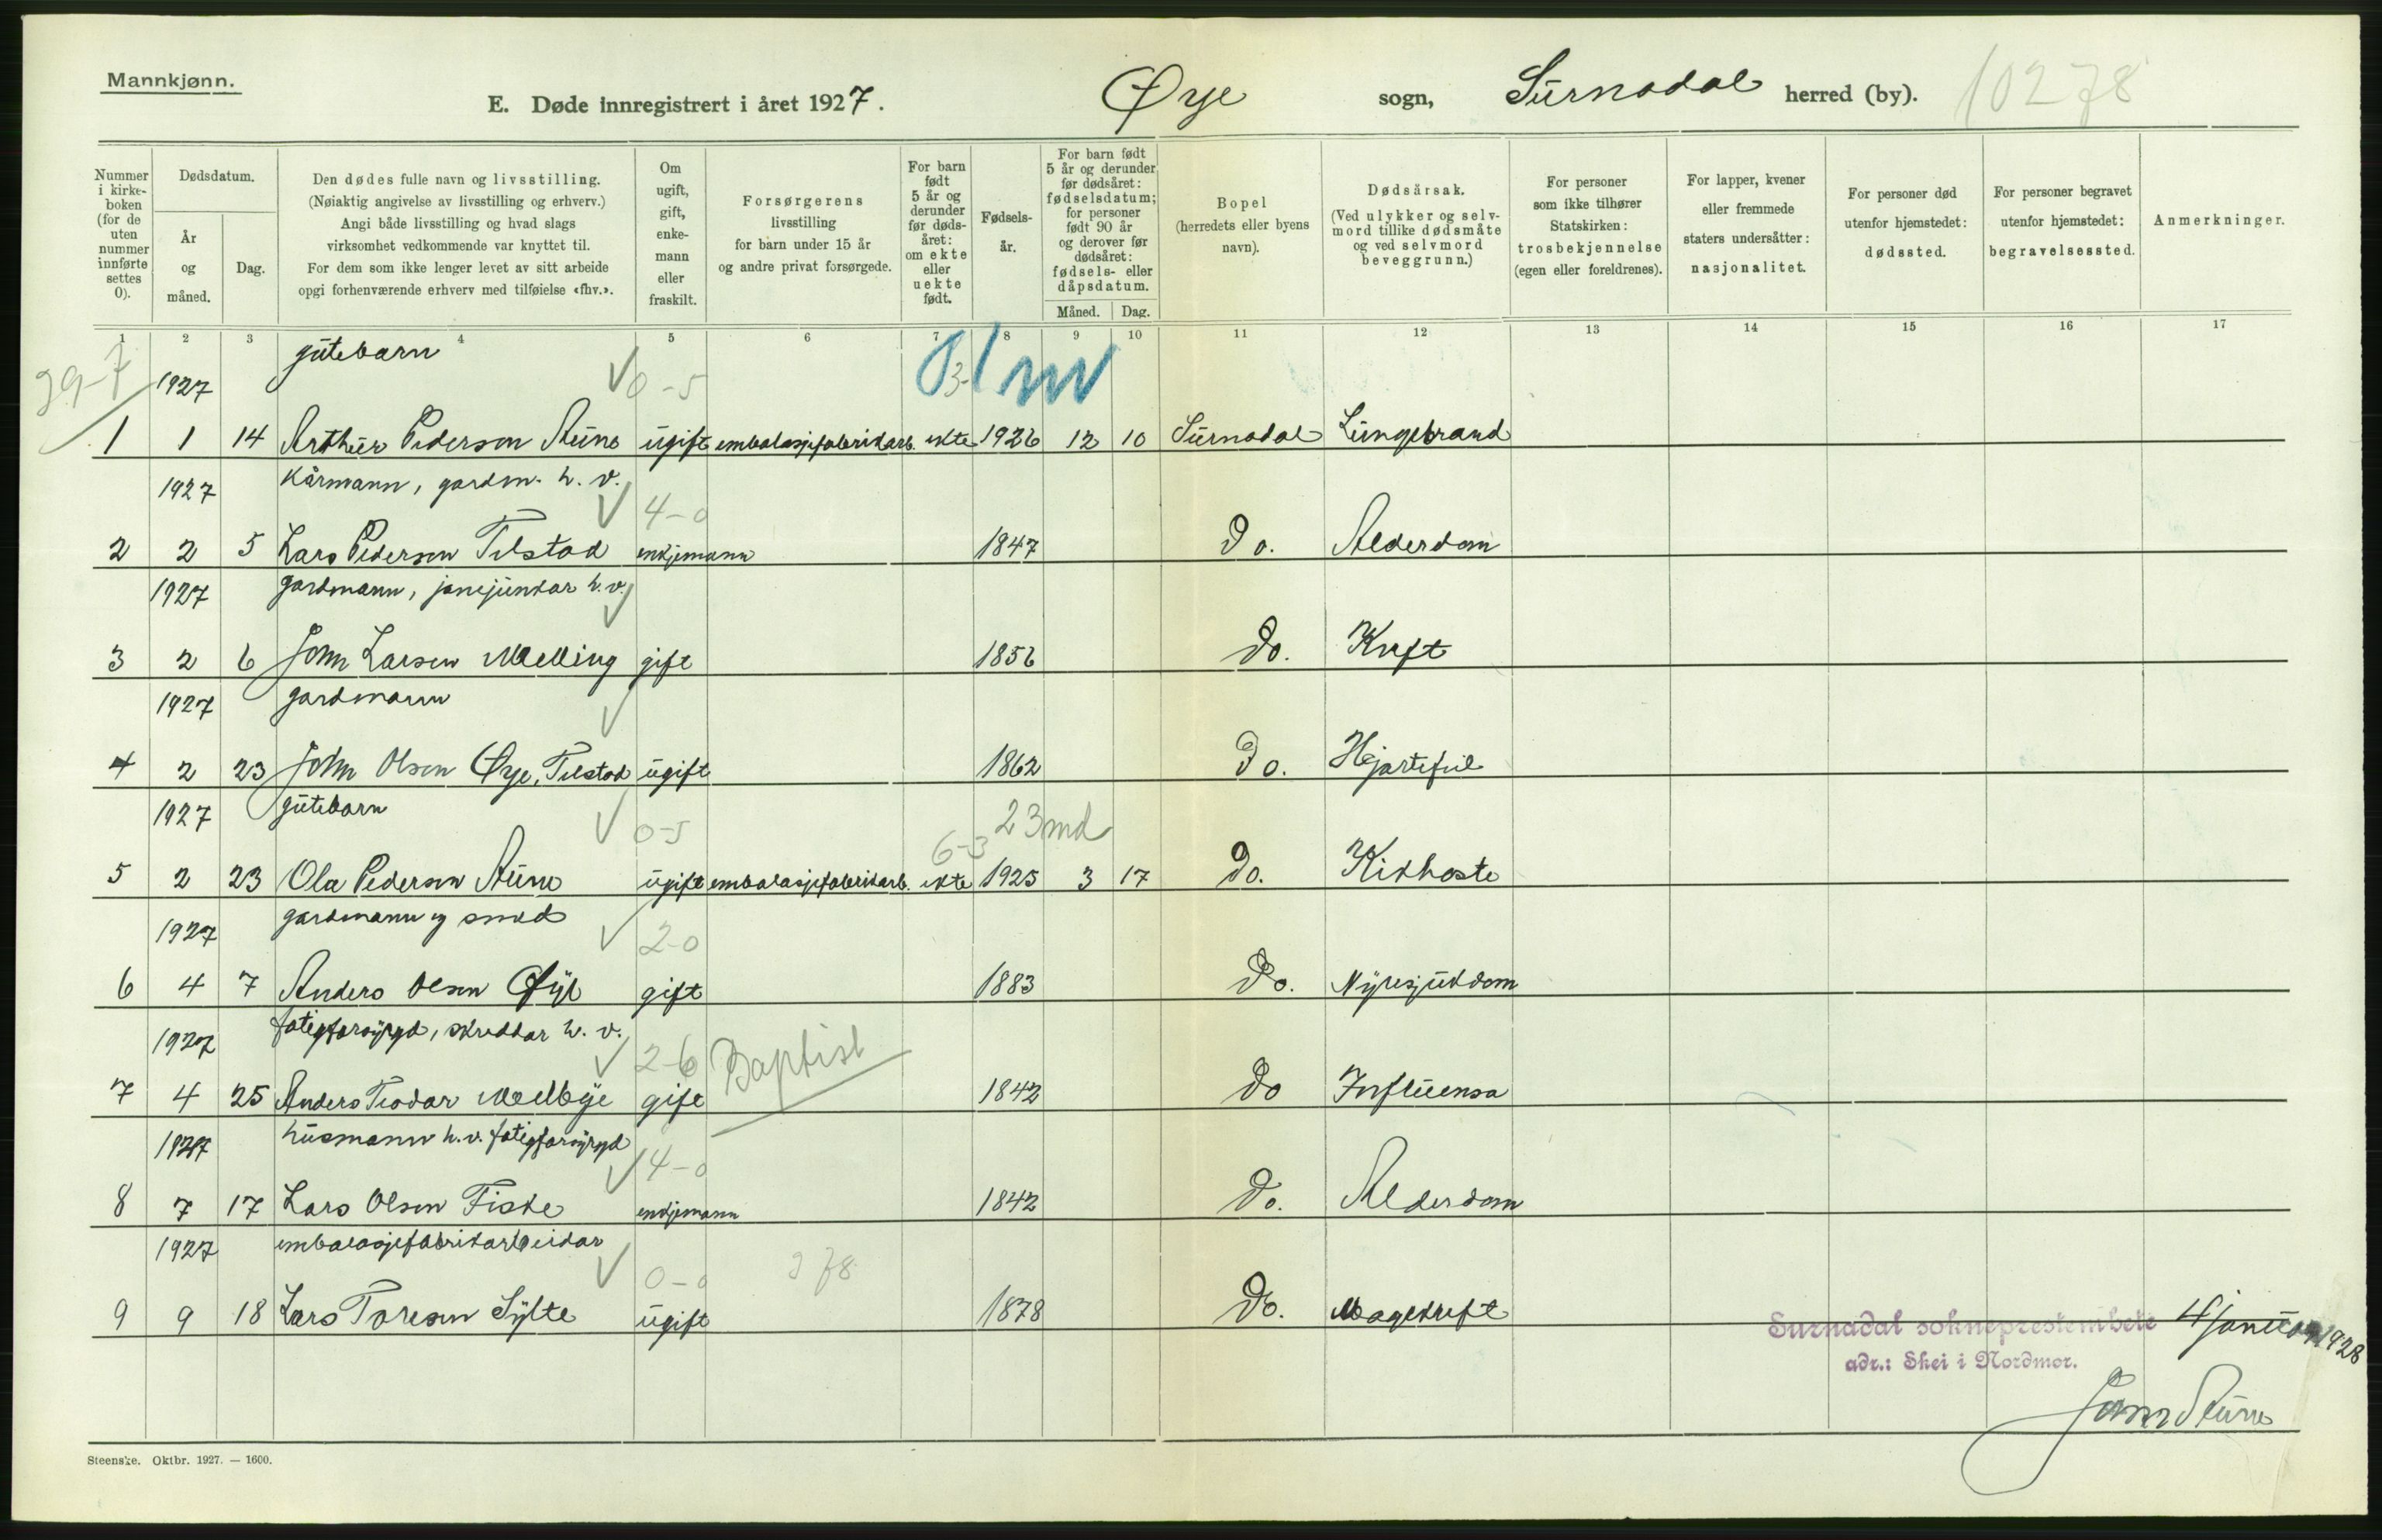 Mannkjønn.
E. Døde innregistrert i året 1927.
Øye sogn, Surnadal herred (by). 10278
Nummer i kirke- boken (for de uten nummer innførte settes 0).
Dødsdatum.
År og måned.
Dag.
Den dødes fulle navn og livsstilling.
(Nøiaktig angivelse av livsstilling og erhverv.)
Angi både livsstilling og hvad slags
virksomhet vedkommende var knyttet til.
For dem som ikke lenger levet av sitt arbeide
opgi forhenværende erhverv med tilføielse «fhv.».
Om ugift, gift, enke- mann eller fraskilt.
Forsørgerens
livsstilling
for barn under 15 år
og andre privat forsørgede.
For barn født 5 år og derunder før døds- året: om ekte eller uekte født.
Fødsels- år.
For barn født 5 år og derunder før dødsåret: fødselsdatum; for personer født 90 år og derover før dødsåret: fødsels- eller dåpsdatum.
Måned.
Dag.
Bopel
(herredets eller byens
navn).
Dødsårsak.
(Ved ulykker og selv-
mord tillike dødsmåte
og ved selvmord
beveggrunn.)
For personer
som ikke tilhører
Statskirken:
trosbekjennelse
(egen eller foreldrenes).
For lapper, kvener
eller fremmede
staters undersåtter:
nasjonalitet.
For personer død
utenfor hjemstedet:
dødssted.
For personer begravet
utenfor hjemstedet:
begravelsessted.
Anmerkninger.
1 2 3 4 5 6 7 8 9 10 11 12 13 14 15 16 17
29-7 1927 gutebarn 0-5
1 1 14 Arthur Pederson Aune ugift embalasjefabrikarb. ekte 1926 12 10 Surnadal Lungebrand
1927 Kårmann, gardm. h. v. 4-0
2 2 5 Lars Pederson Tilstad enkjemann 1847 Do. Alderdom
1927 gardmann, h. v.
3 2 6 John Larsen Melling gift 1856 Do. Kreft
1927 gardmann
4 2 23 John Olsen Øye, Tilstad ugift 1862 Do. Hjartefeil
1927 gutebarn 0-5 6-3 23 md
5 2 23 Ola Pederson Aune ugift embalasjefabrikarb. ekte 1925 3 17 Do. Kikhoste
1927 gardmann og smed 2-0
6 4 7 Anders Olsen Øye gift 1883 Do. Nyresjukdom
1927 fatigforsyrgd, skreddar h. v. 2-6 Baptist
7 4 25 Anders Teodor Mellbye gift 1842 Do Influensa
1927 husmann h. v. fatigforsyrgd 4-0
8 7 17 Lars Olsen Fiske enkjemann 1842 Do. Alderdom
1927 embalasjefabrikarbeidar 0-0 378
9 9 18 Lars Toresen Sylte ugift 1878 Do. Magekreft
Surnadal sokneprestembete 4 januar 1928
adr.: Skei i Nordmør.
Steenske. Oktbr. 1927. — 1600.